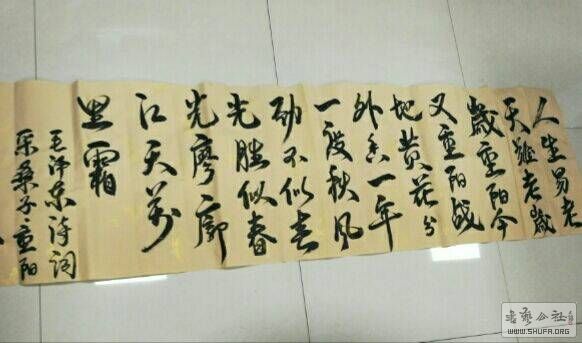 人生易老
天難老歲
歲重阳今
又重阳战
地黄花分
外香一年
一度秋风
劲不似春
光胜似春
光廖廓
江天萬
里霜
毛泽东诗词
采桑子·重阳
书艺公社
WWW.SHUFA.ORG